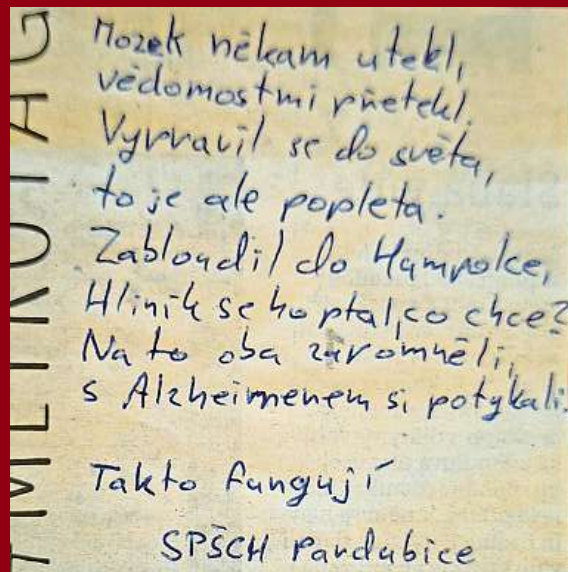 Mozek někam utekl,
vědomostmi přetekl.
Vypravil se do světa,
to je ale popleta.
Zabloudil do Humpolce,
Hliník se ho ptal, co chce?
Na to oba zapomněli,
s Alzheimerem si potykali.
Takto fungují
SPŠCH Pardubice